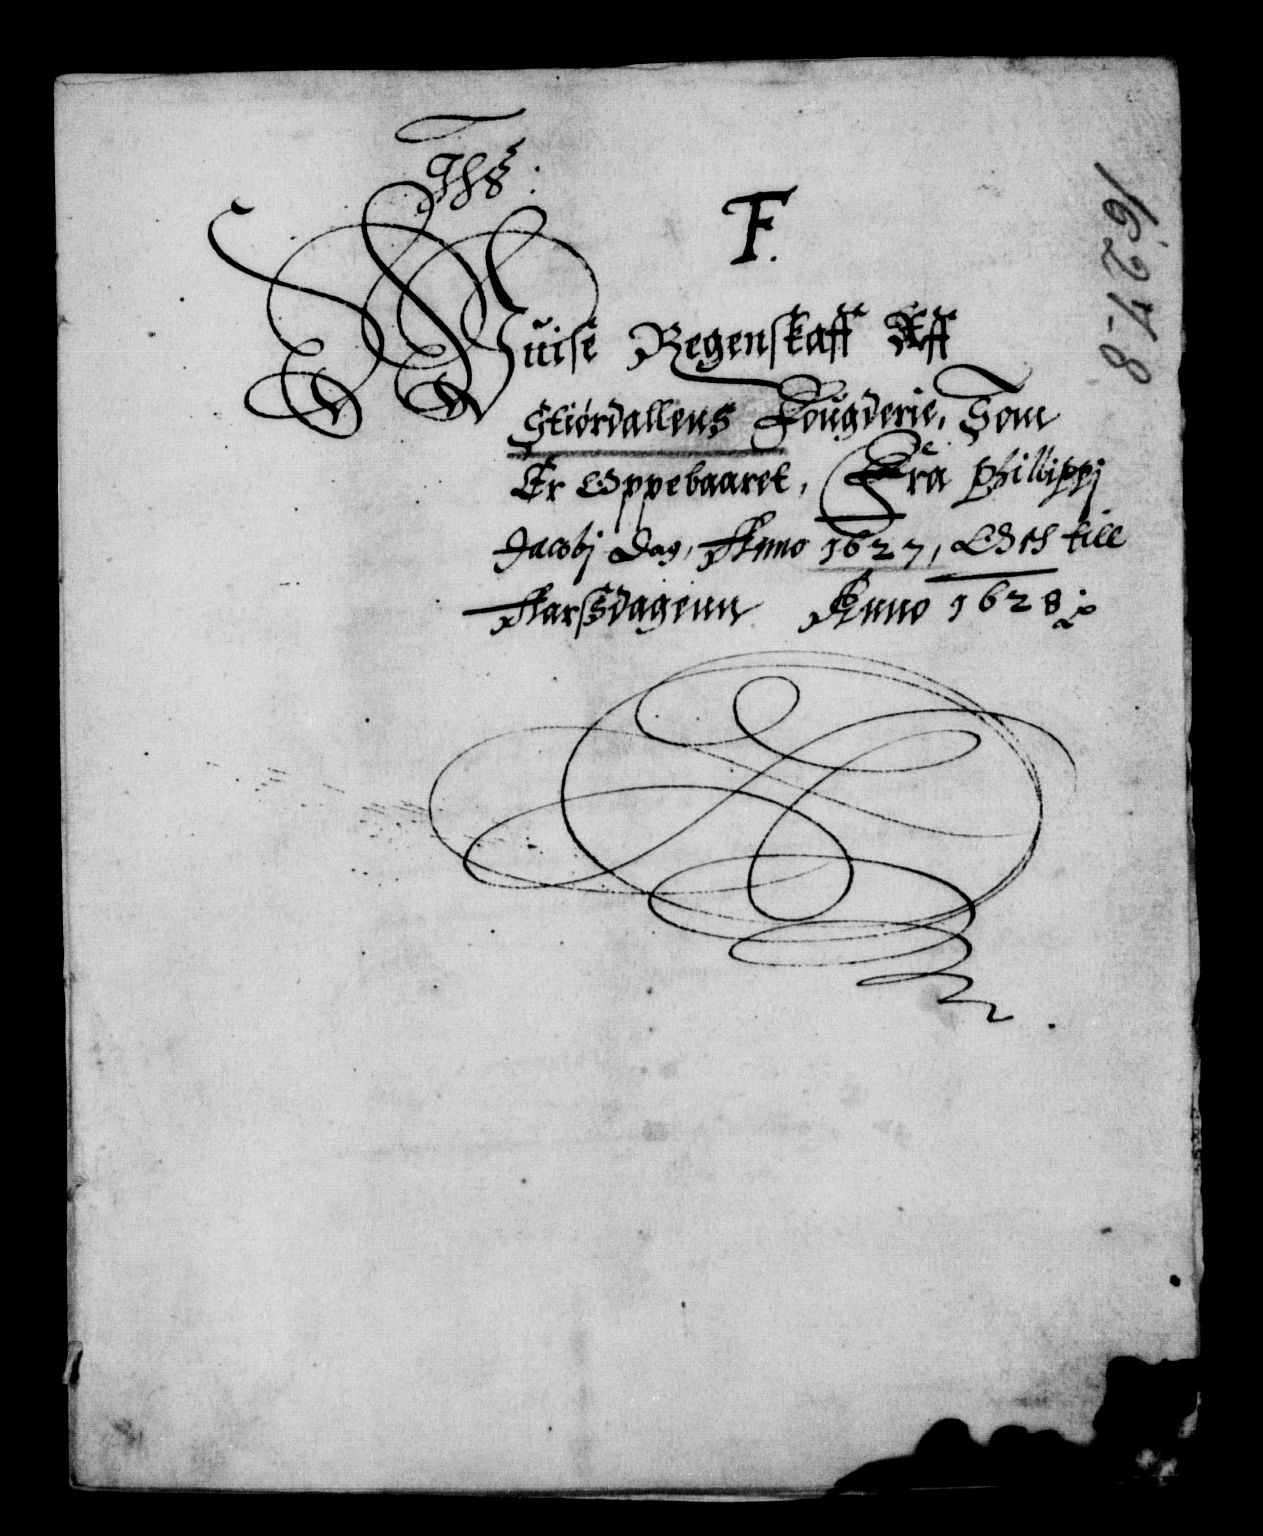 Ihs:
F.
1627-8
Wüise Regenskaff Aff
Stiørdallens Fougderie, Som
Er Oppebaaret, Fra Phillippj
Jacobj Dag, Anno 1627, Och till
Aarssdagenn Anno 1628